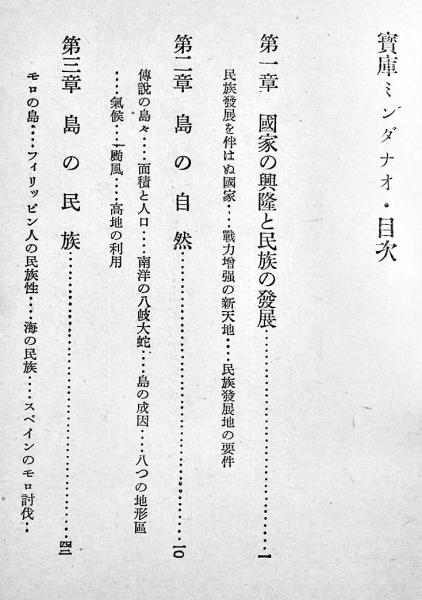 寶庫ミンダナオ・目次
第一章 國家の興隆と民族の發展…………………………一
民族發展を伴はぬ國家……戰力增强の新天地……民族發展地の要件
第二章 島の自然…………………………一〇
傳說の島々……面積と人口……南洋の八岐大蛇……島の成因……八つの地形區
……氣候……颱風……高地の利用
第三章 島の民族…………………………四三
モロの島……フィリッピン人の民族性……海の民族……スペインのモロ討伐…